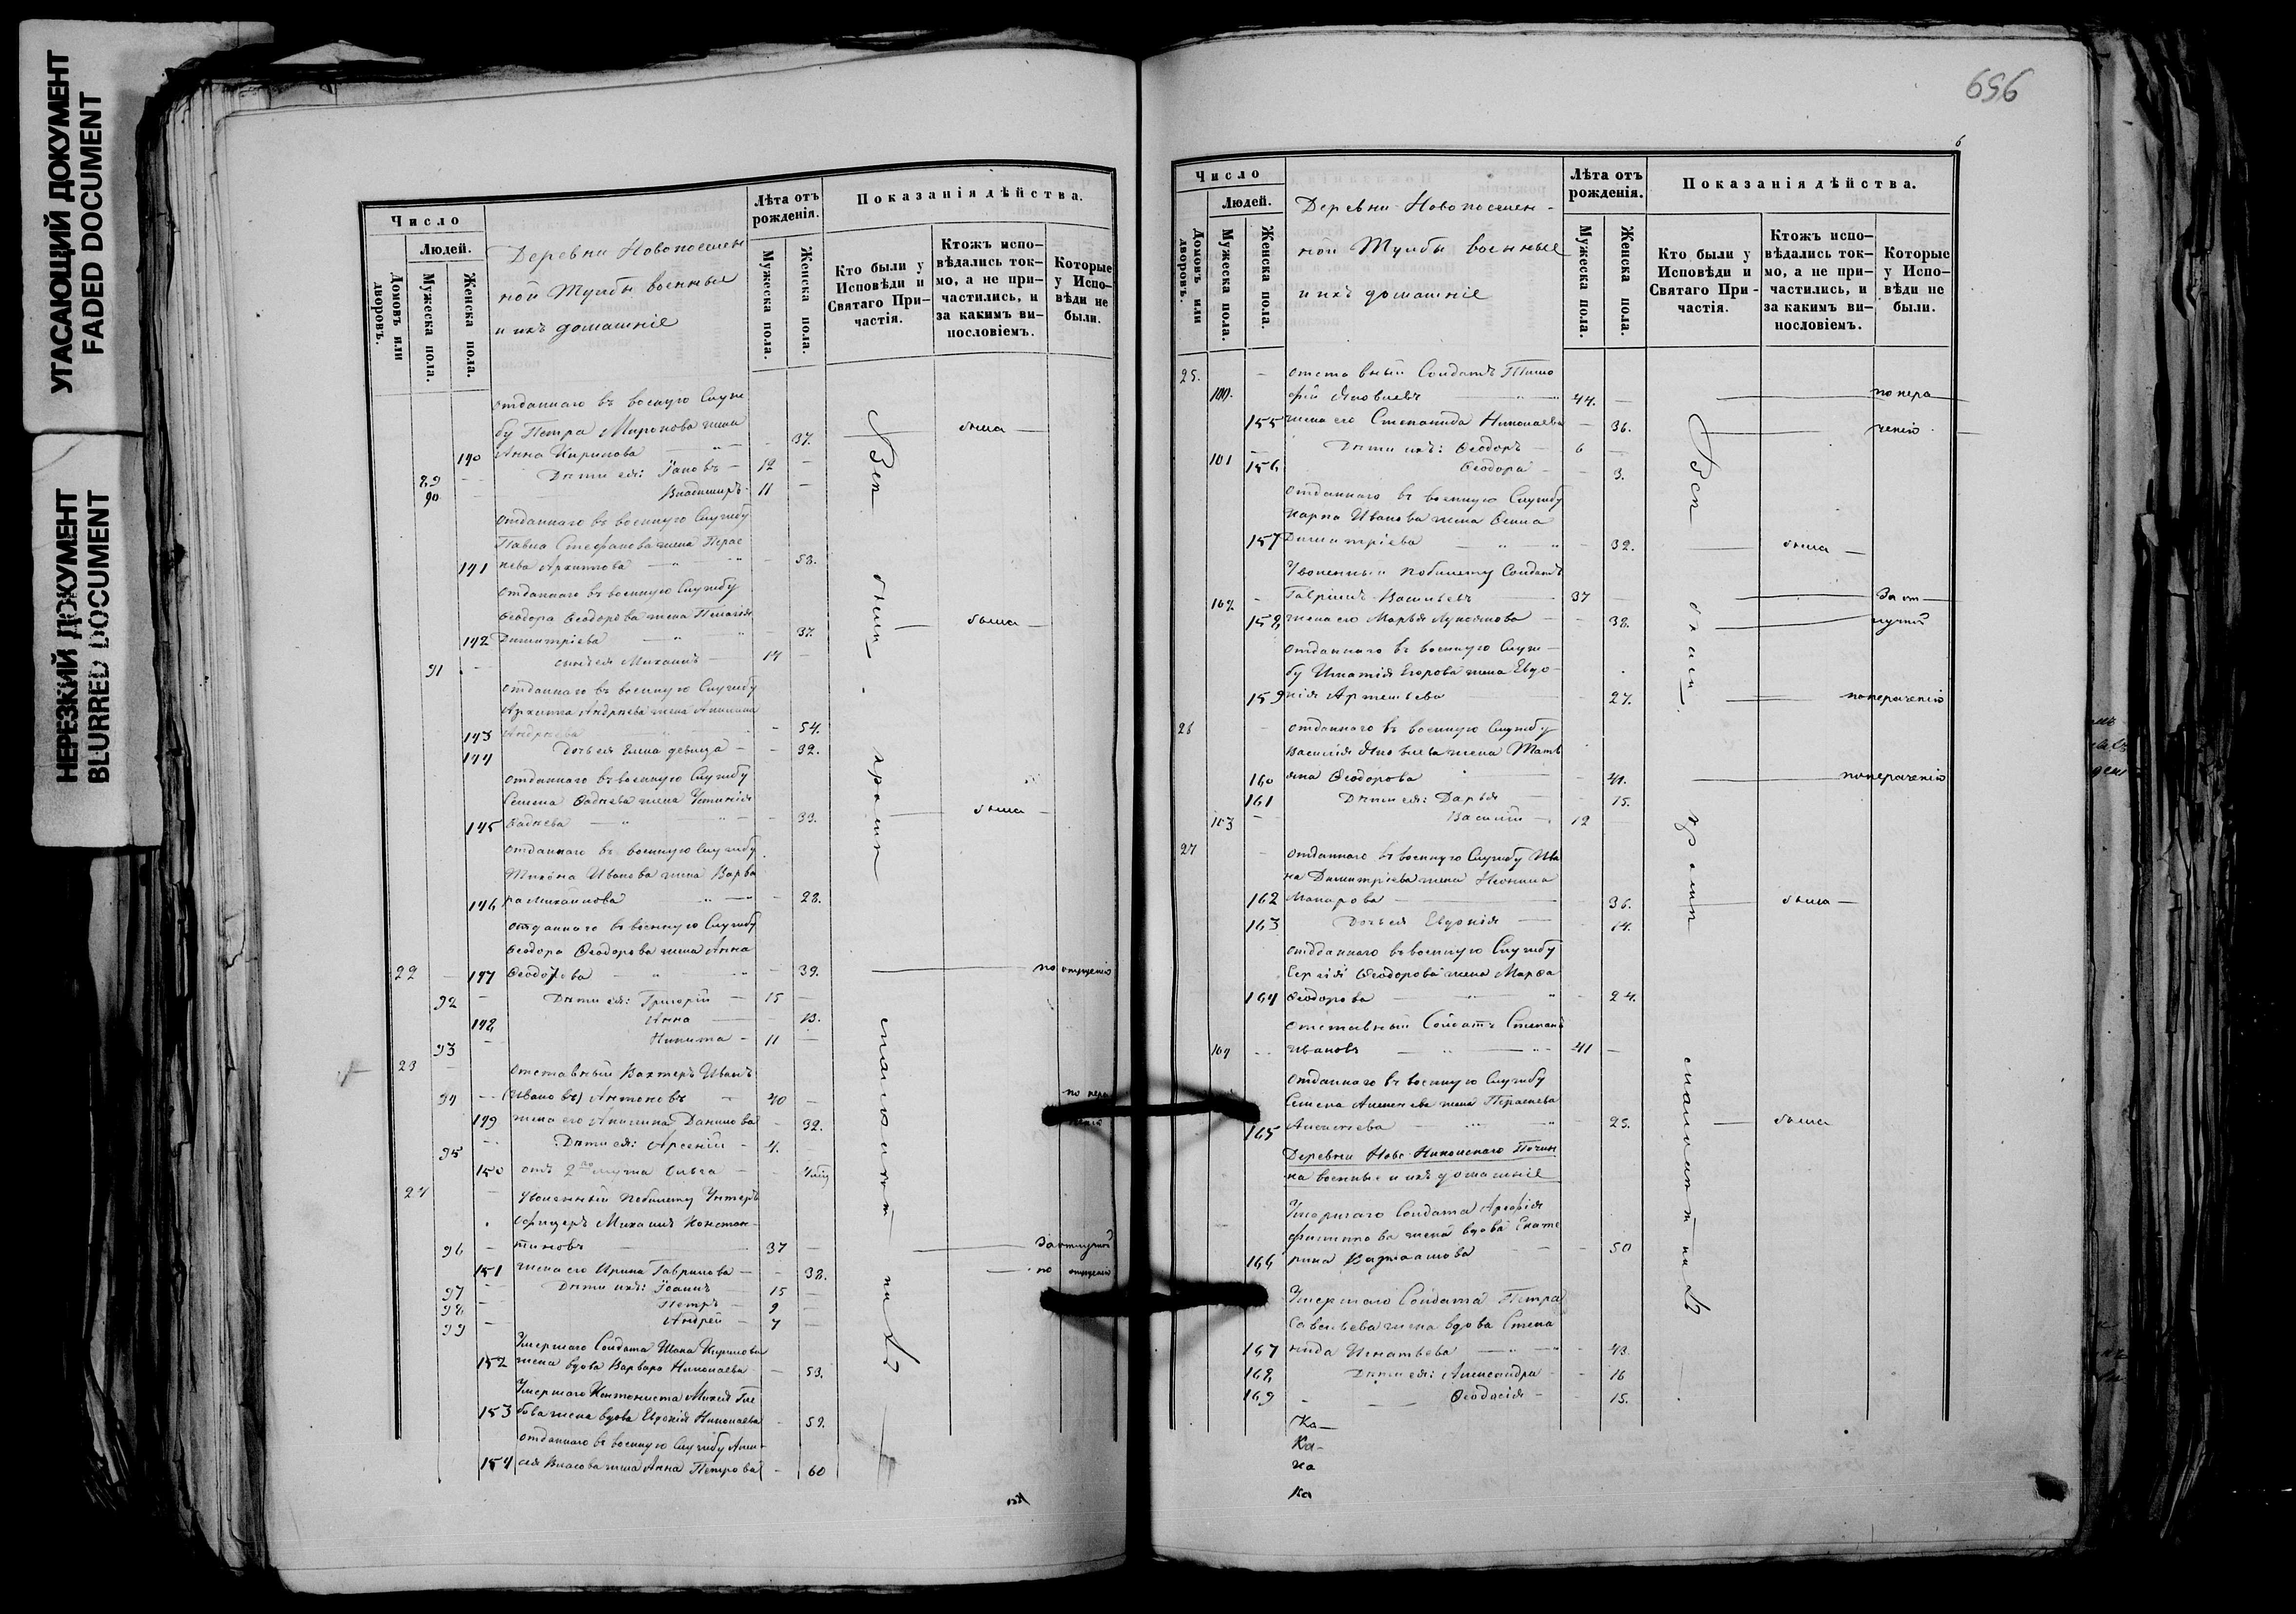 УГАСАЮЩИЙ ДОКУМЕНТ
FADED DOCUMENT
НЕРЕЗКИЙ ДОКУМЕНТ
BLURRED DOCUMENT
Число
Людей.
Домовъ или дворовъ.
Мужеска пола.
Женска пола.
Деревни Новопоселен
ной Тумбы военные
и ихъ домашніе
Лѣта отъ рожденія.
Мужеска пола.
Женска пола.
Показанія дѣйства.
Кто были у Исповѣди и Святаго Причастія.
Ктожъ исповѣдались токмо, а не причастились, и за какимъ винословіемъ.
Которые у Исповѣди не были.
отданнаго въ военную Служ
бу Петра Миронова жена
140 Анна Кирилова - 37. была
89 Дѣти ея: Іаковъ - 12 -
90 Владимиръ - 11 -
отданнаго въ военную Службу
Павла Стефанова жена Парас
141 кева Архипова - 53.
отданнаго въ военную Службу
Ѳеодора Ѳеодорова жена Пелагія
142 Димитріева - 37. была
91 сынъ ея Михаилъ - 14 -
отданнаго въ военную Службу
Архипа Андреева жена Акилина
143 Андреева - 54.
144 Дочь ея Елена девица - 32.
отданнаго въ военную Службу
Семена Фадеева жена Устинія
145 Фадеева - 33. была
отданнаго въ военную Службу
Тихона Иванова жена Варва
146 ра Михайлова - 28.
отданнаго въ военную Службу
Ѳеодора Ѳеодорова жена Анна
22 147 Ѳеодорова - 39. по опущенію
92 Дѣти ея: Григорій - 15 -
148 Анна - 13.
93 Никита - 11 -
23 отставный Вахтеръ Иванъ
94 (Ивановъ) Антоновъ - 40 - по нера
149 жена его Акилина Данилова - 32.
95 Дѣти ея: Арсеній - 4. -
150 отъ 2го мужа Ольга
24 Уволенный побилету Унтеръ
офицеръ Михаилъ Констан
96 тиновъ - 37 - За отлучкой
151 жена его Ирина Гаврилова - 38. по опущенію
97 Дѣти ихъ: Іоаннъ 15 -
98 Петръ - 9 -
99 Андрей - 7 -
Умершаго Солдата Ивана Кирилова
152 жена вдова Варвара Николаева - 53.
Умершаго Кантониста Михея Гле
153 бова жена вдова Евдокія Николаева - 59.
отданнаго въ военную Службу Алек
154 сея Власова жена Анна Петрова - 60
Всѣ были храми сталоинт наЗ
696
6
Число
Людей.
Домовъ или дворовъ.
Мужеска пола.
Женска пола.
Деревни Новопоселен-
ной Тумбы военные
и ихъ домашніе
Лѣта отъ рожденія.
Мужеска пола.
Женска пола.
Показанія дѣйства.
Кто были у Исповѣди и Святаго Причастія.
Ктожъ исповѣдались токмо, а не причастились, и за какимъ винословіемъ.
Которые у Исповѣди не были.
25. отставный Солдатъ Тимо
100. фей Яковлевъ 44. - по нера
155 жена его Степанида Николаева - 36. ченію
101 Дѣти ихъ: Ѳеодоръ 6 -
156 Ѳеодора - 3.
отданнаго въ военную Службу
Карпа Иванова жена Ѳекла
157 Димитріева - 32. была
Уволенный побилету Солдатъ
102 Гавріилъ Васильевъ 37 - За от
158 жена его Марья Лукоянова - 38. лучкой
отданнаго въ военную Служ-
бу Игнатія Егорова жена Евдо-
159 кія Артемьева 27. понераченію
26 отданнаго въ военную Службу
Василія Яковлева жена Тать
160 яна Ѳеодорова - 41. понераченію
161 Дѣти ея: Дарья - 15.
103 Василій - 12 -
27 отданнаго въ военную Службу Ива
на Димитріева жена Неонила
162 Макарова - 36. была
163 Дочь ея Евдокія - 14.
отданнаго въ военную Службу
Сергія Ѳеодорова жена Марѳа
164 Ѳеодорова - 24.
отставный Солдатъ Степанъ
104 Ивановъ - 41 -
отданнаго въ военную Службу
Семена Алексеева жена Параскева
165 Алексеева - 25. была
Деревни Ново-Никольскаго Почин
ка военные и ихъ домашніе
Умершаго Солдата
Филиппова жена вдова Екате
166 рина - 50
Умершаго Солдата Петра
Савельева жена вдова Степа
167 нида Игнатьева - 43.
168 Дѣти ея: Александра - 16
169 Ѳеодосія - 15.
Всѣ были
Ка-
Ка-
Ка
Ка